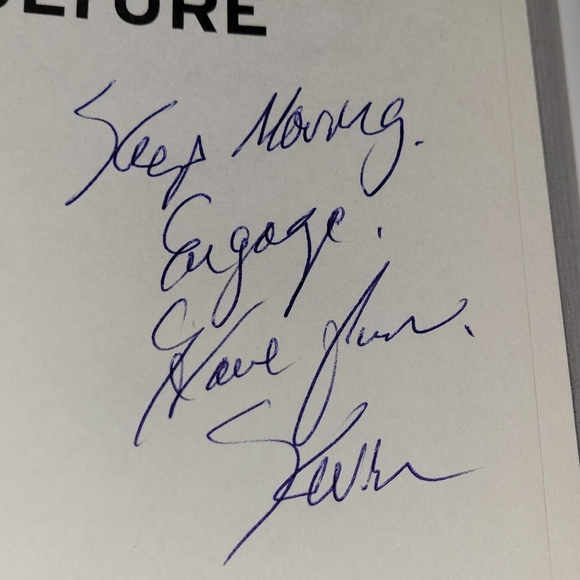 ULTURE
Keep Moving.
Engage.
Have fun.
Kevin